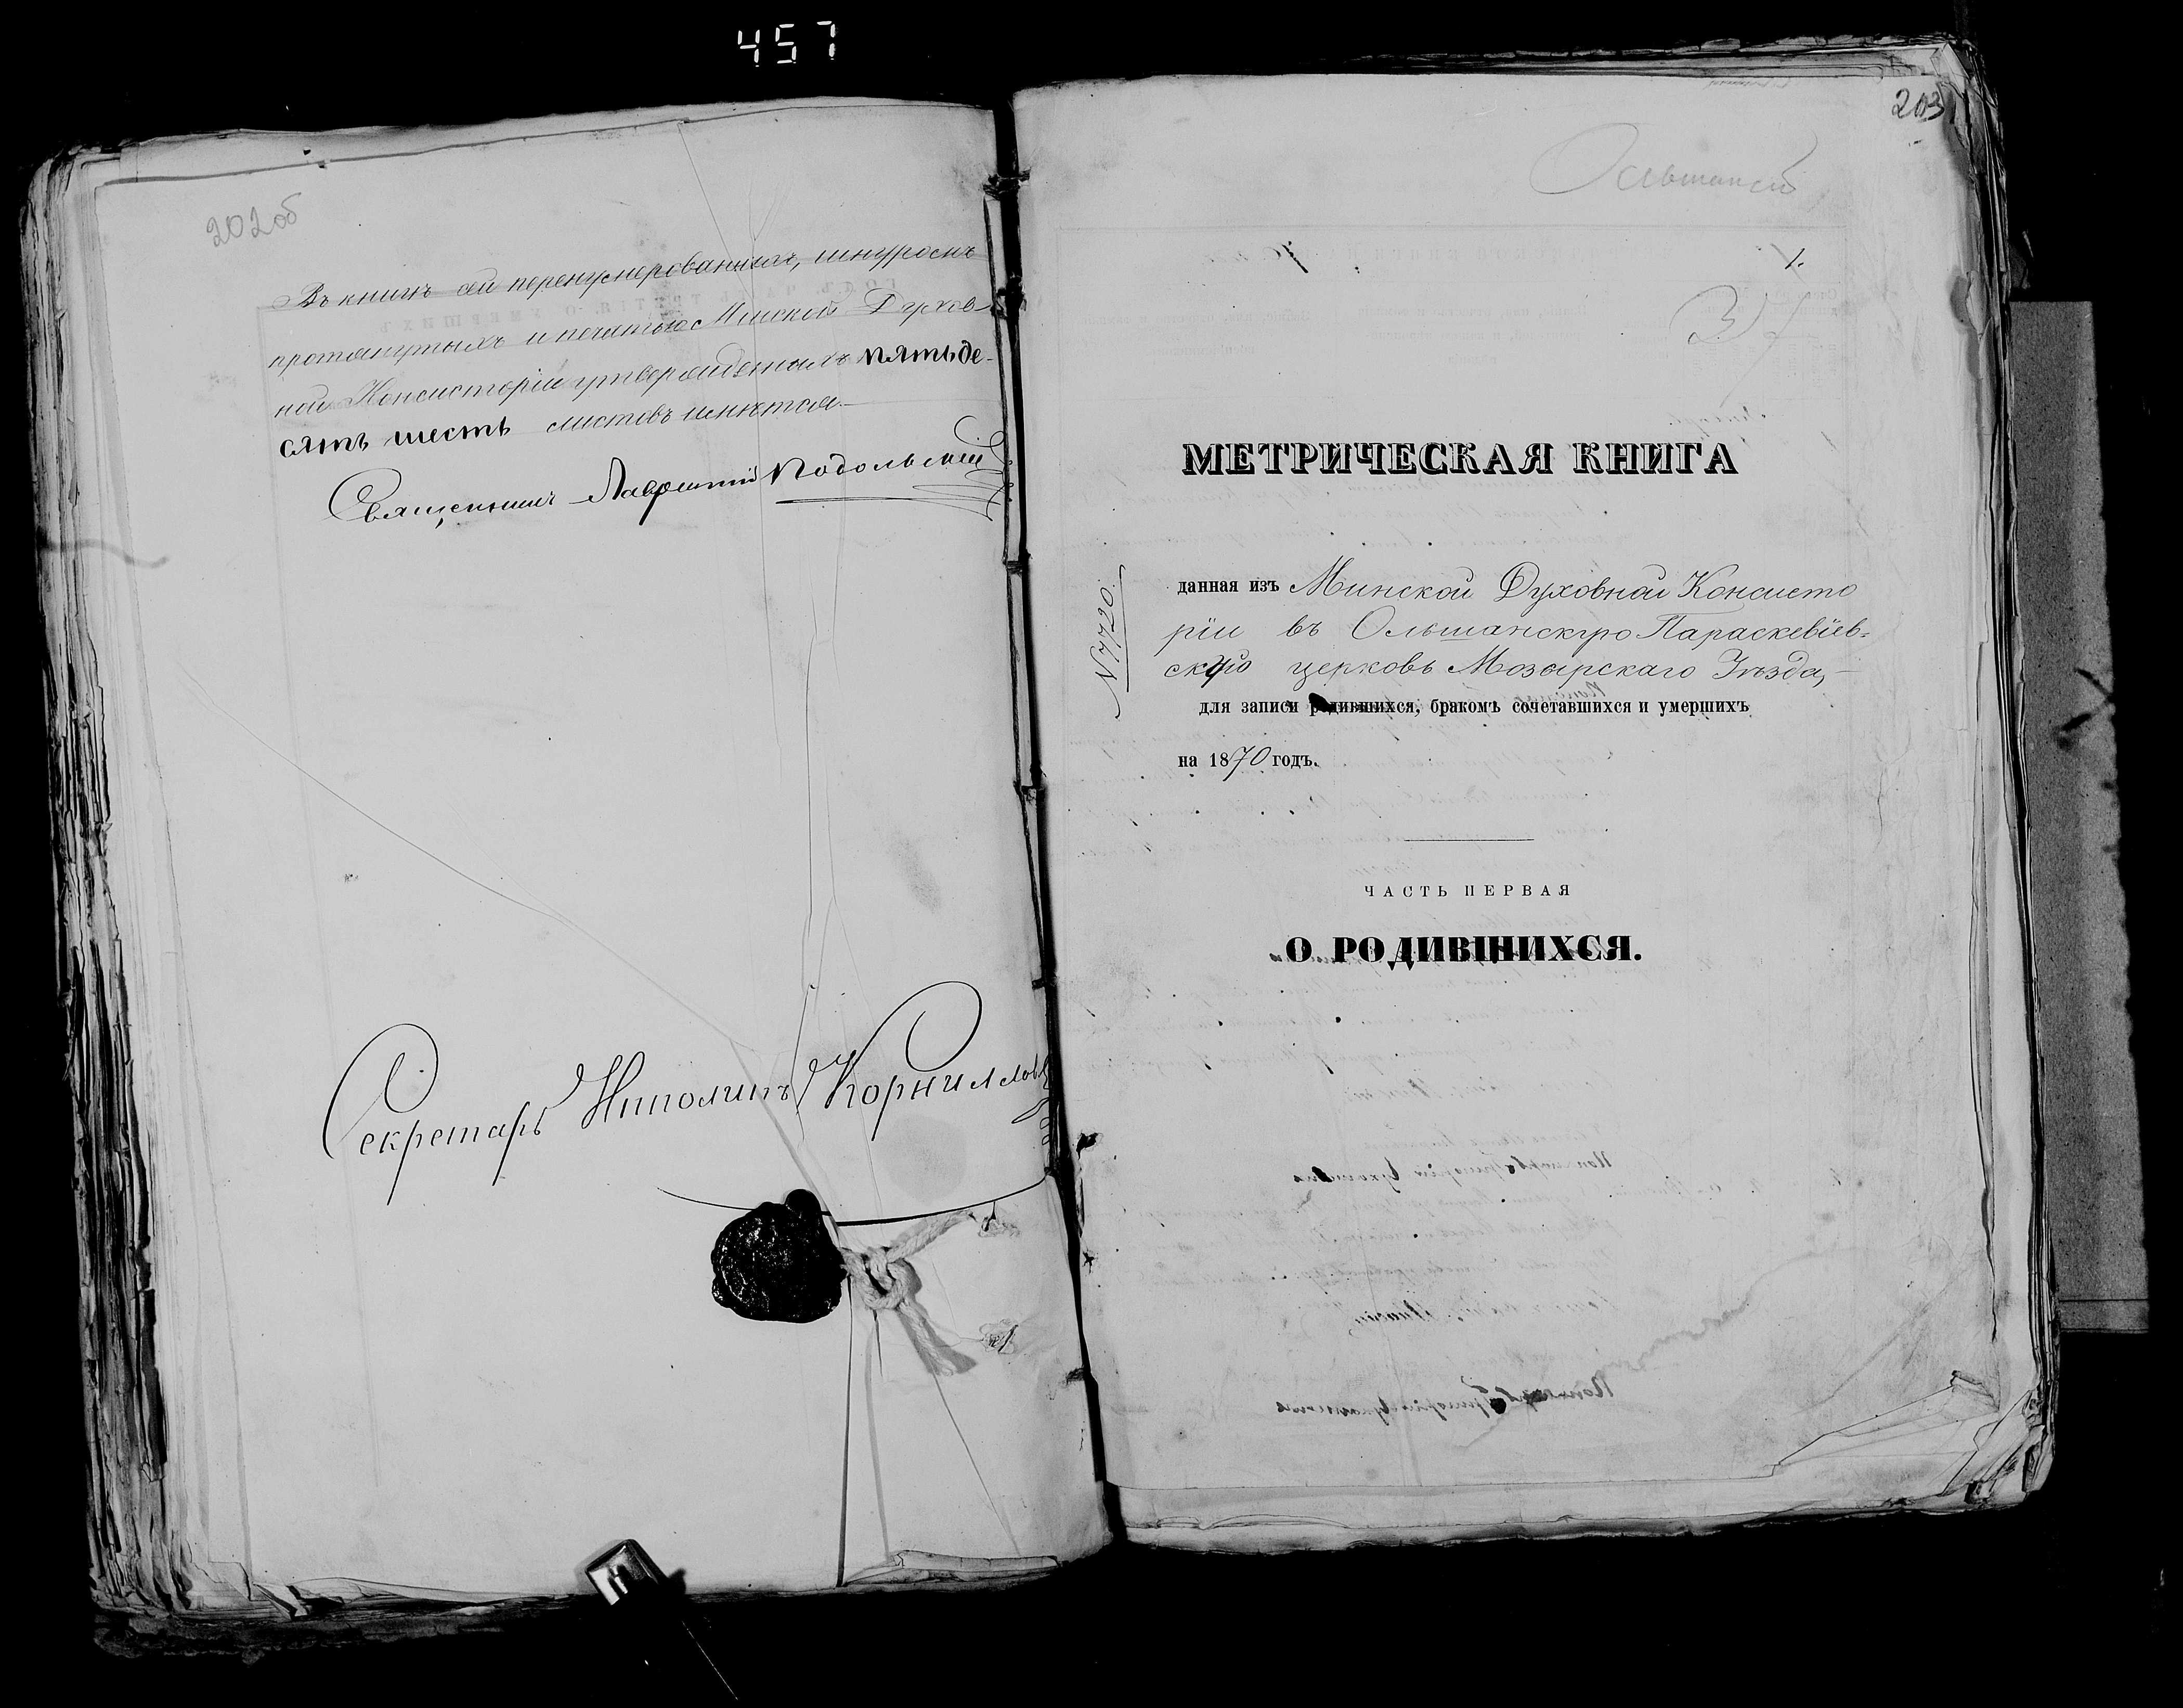 457
202об
Въ книгѣ сей перенумерованныхъ, шнуромъ
протянутыхъ и печатью Минской Духов-
ной Консисторіи утвержденныхъ пятьде-
сятъ шесть листовъ имѣется
Священникъ Лаврентій Подольскій
Секретарь Ипполитъ Корниловъ
203
Ольшанской
1.
37
МЕТРИЧЕСКАЯ КНИГА
№ 7720.
данная изъ Минской Духовной Консисто
ріи въ Ольшанскую Параскевіев-
скую церковь Мозырскаго Уѣзда,
для записи родившихся, бракомъ сочетавшихся и умершихъ
на 1870 годъ.
ЧАСТЬ ПЕРВАЯ
О РОДИВШИХСЯ.